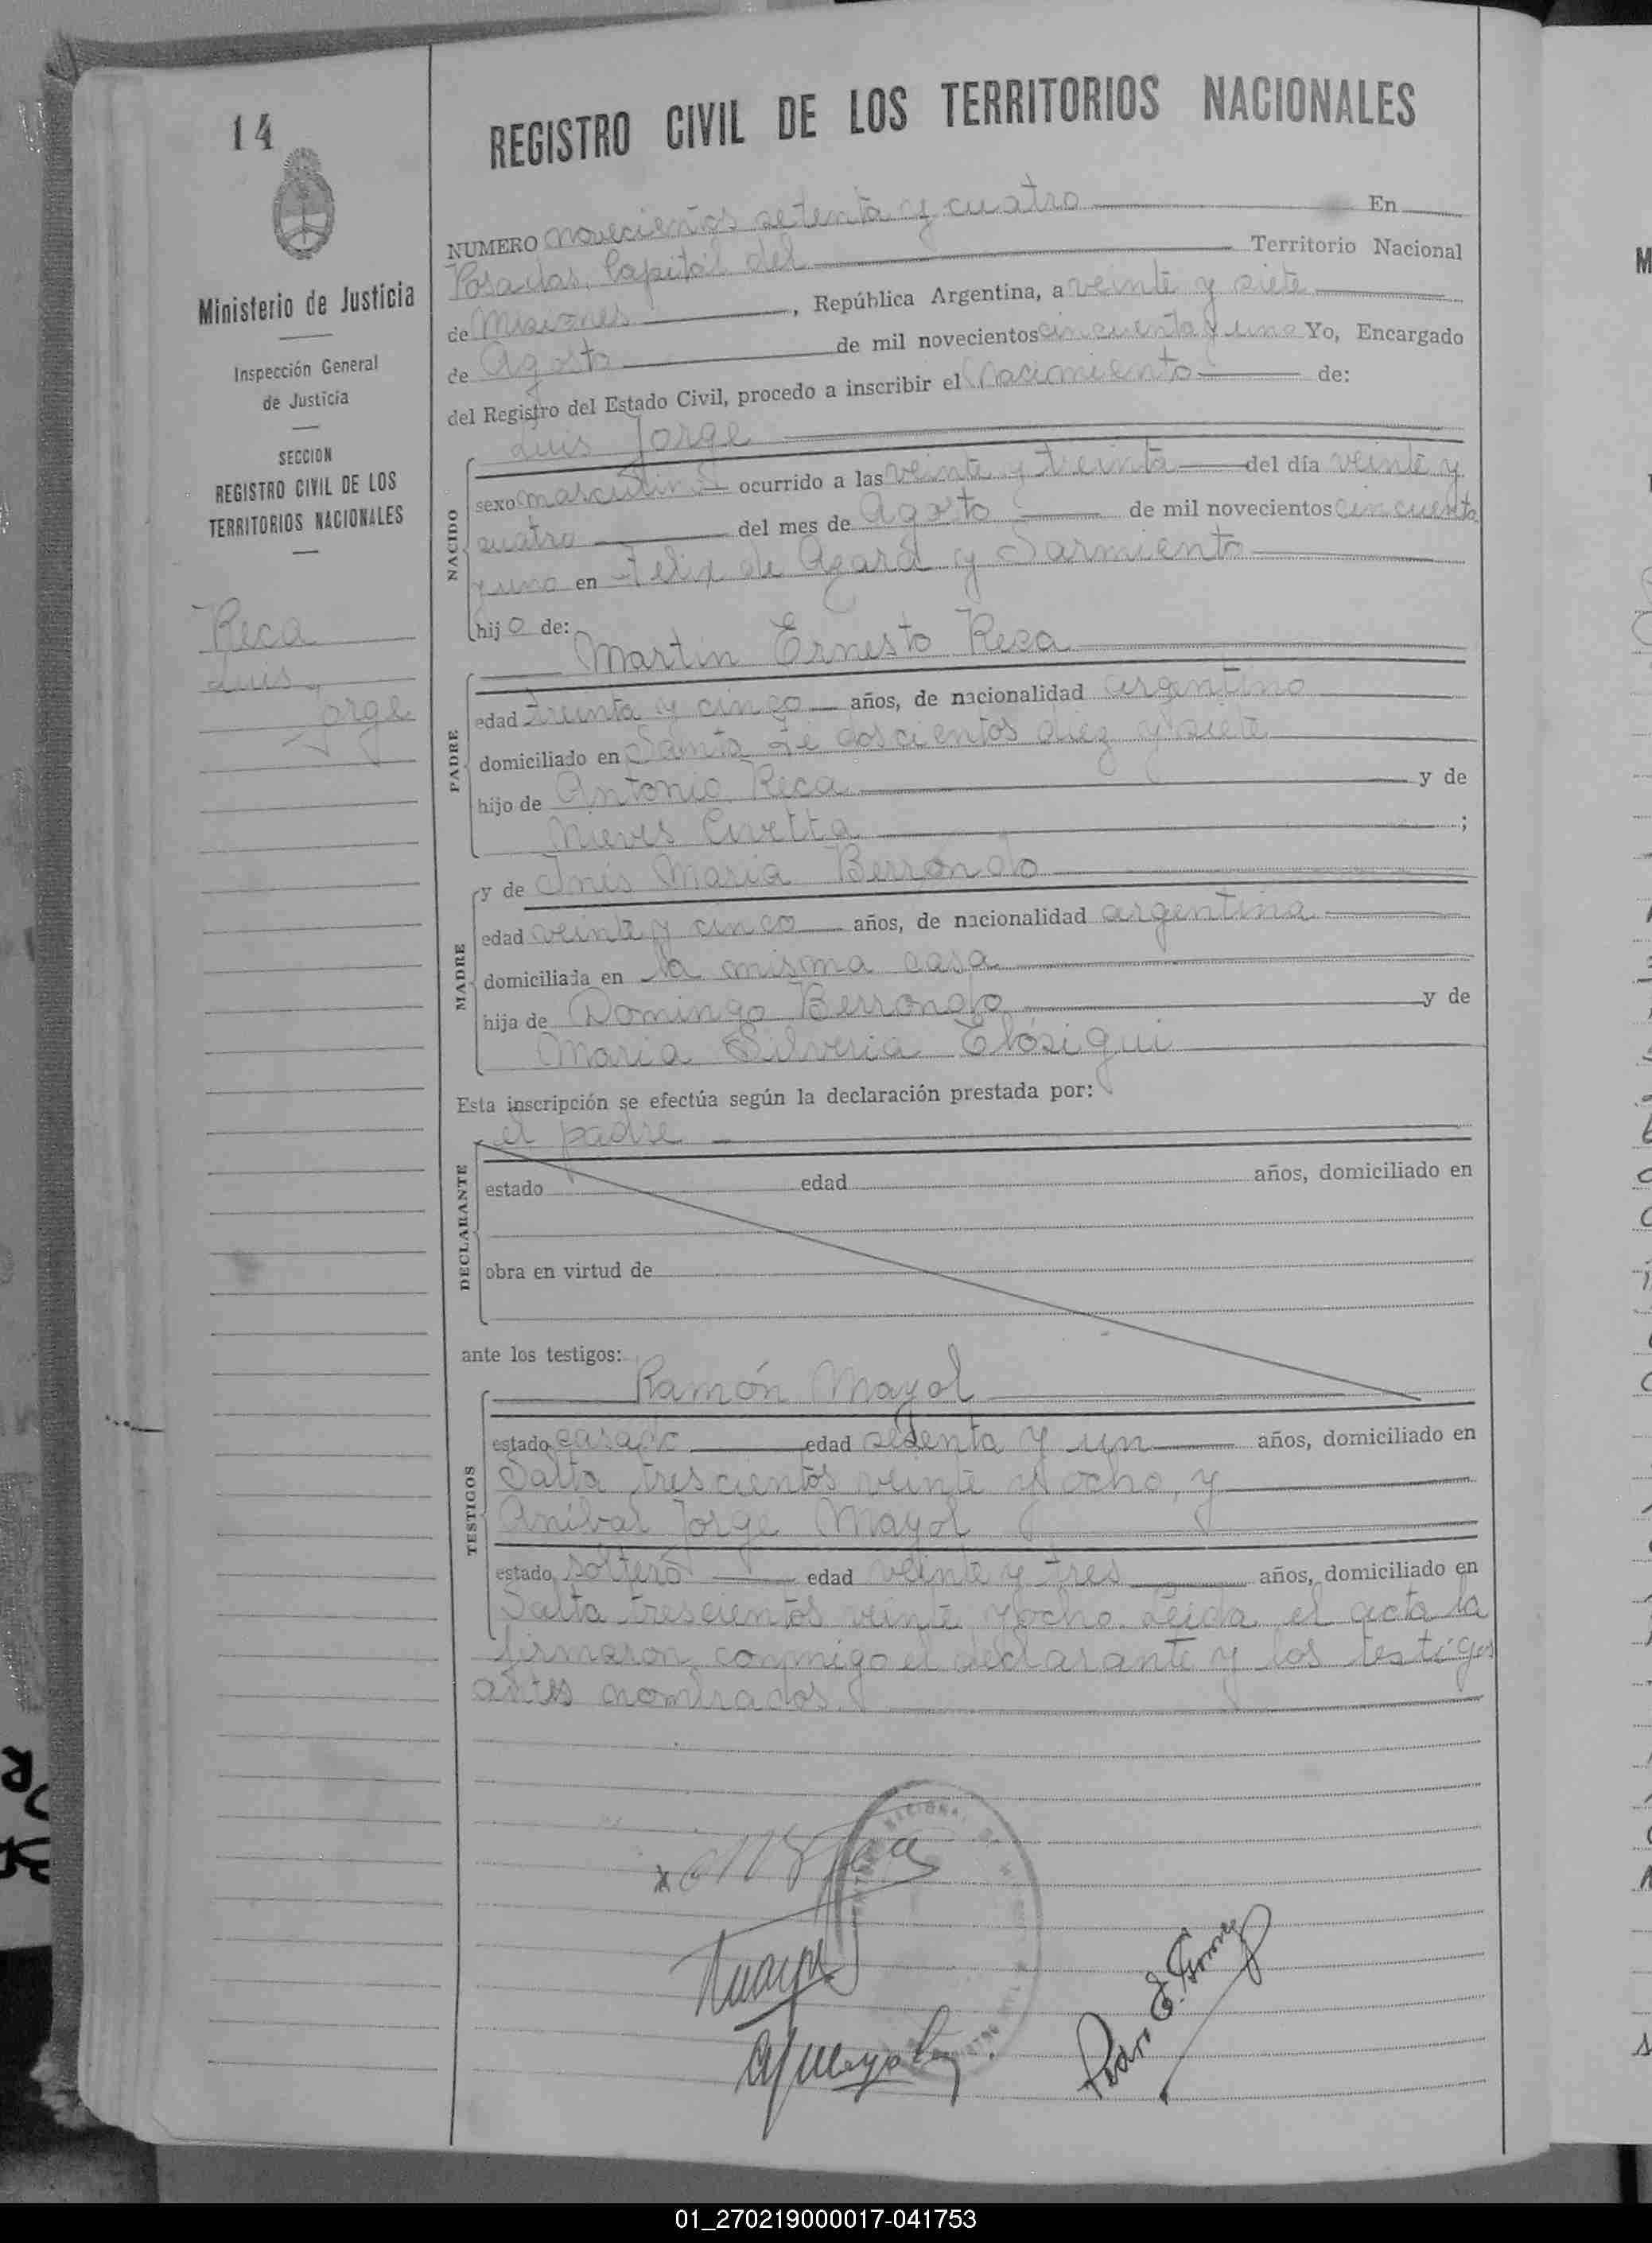 14
Ministerio de Justicia
Inspección General
de Justicia
SECCION
REGISTRO CIVIL DE LOS
TERRITORIOS NACIONALES
Reca
Luis
Jorge
REGISTRO CIVIL DE LOS TERRITORIOS NACIONALES
NUMERO novecientos setenta y cuatro En
Posadas, Capital del Territorio Nacional
de Misiones, República Argentina, a veinte y siete
de Agosto de mil novecientos cincuenta y uno Yo, Encargado
del Registro del Estado Civil, procedo a inscribir el Nacimiento de:
Luis Jorge
NACIDO
sexo masculino ocurrido a las veinte y treinta del día veinte y
cuatro del mes de Agosto de mil novecientos cincuenta
y uno en Felix de Azara y Sarmiento
hijo de:
Martin Ernesto Reca
PADRE
edad treinta y cinco años, de nacionalidad argentino
domiciliado en Santa Fé doscientos diez y siete
hijo de Antonio Reca y de
Nieves ;
y de Inés Maria Berrondo
MADRE
edad veinte y cinco años, de nacionalidad argentina
domiciliada en la misma casa
hija de Domingo Berrondo y de
Maria Silveria Elósigui
Esta inscripción se efectúa según la declaración prestada por:
el padre
DECLARANTE
estado edad años, domiciliado en
obra en virtud de
ante los testigos:
Ramón Mayol
TESTIGOS
estado casado edad sesenta y un años, domiciliado en
Salta trescientos veinte y ocho, y
Anibal Jorge Mayol
estado soltero edad veinte y tres años, domiciliado en
Salta trescientos veinte y ocho. Leida el acta la
firmaron conmigo el declarante y los testigos
antes nombrados.
Pedro E. Gomez
01_270219000017-041753